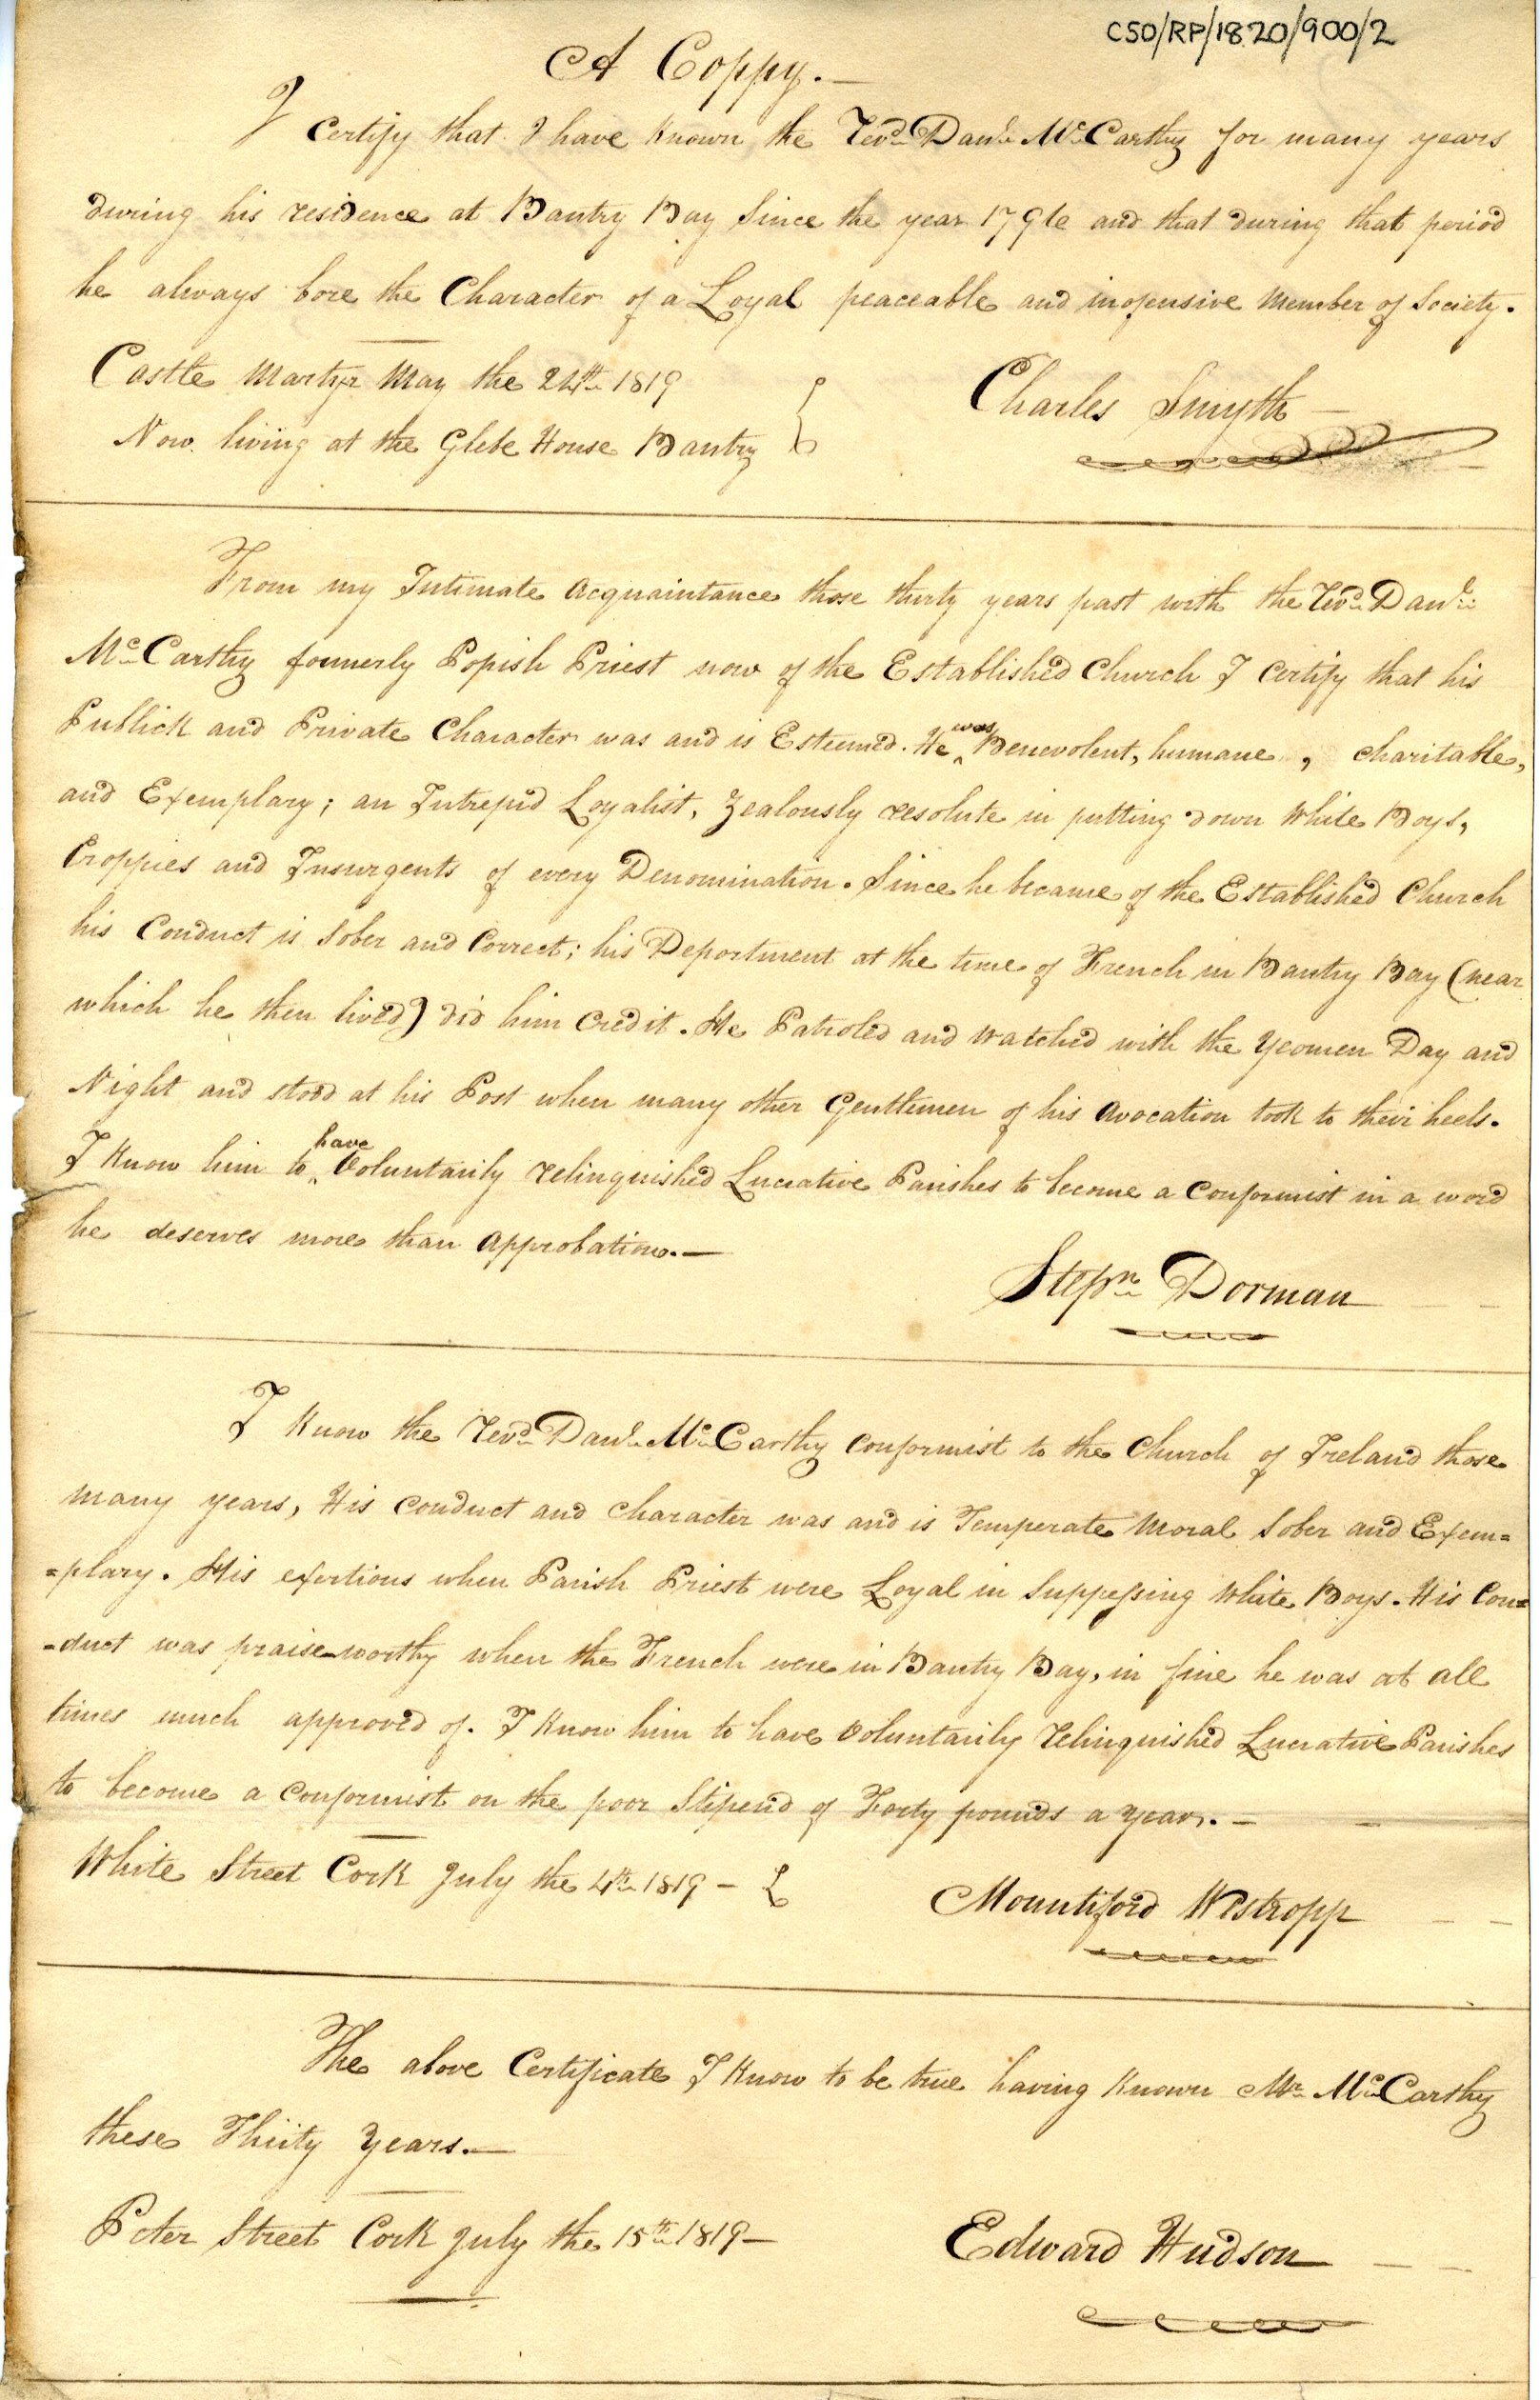 CSO/RP/1820/900/2
A Coppy.—
I certify that I have known the Revd Danl McCarthy for many years
during his residence at Bantry Bay Since the year 1796 and that during that period
he always bore the Character of a Loyal peaceable and inofensive Member of Society.
Castle Martyr May the 24th 1819
Now living at the Glebe House Bantry
Charles Smyth —
From my Intimate Acquaintance those thirty years past with the Revd Danl
McCarthy formerly Popish Priest now of the Established Church I Certify that his
Publick and Private Character was and is Esteemed. He was Benevolent, humane, charitable,
and Exemplary; an Intrepid Loyalist, Zealously resolute in putting down White Boys,
Croppies and Insurgents of every Denomination. Since he became of the Established Church
his Conduct is Sober and Correct; his Deportment at the time of French in Bantry Bay (near
which he then lived) did him Credit. He Patroled and Watched with the Yeomen Day and
Night and stood at his Post when many other Gentlemen of his Avocation took to their heels.
I Know him to have Voluntarily relinquished Lucrative Parishes to become a Conformist in a word
he deserves more than Approbation.—
Stepn Dorman
I Know the Revd Danl McCarthy Conformist to the Church of Ireland those
many years, His Conduct and Character was and is Temperate Moral Sober and Exem=
=plary. His exertions when Parish Priest were Loyal in Suppessing White Boys. His Con=
=duct was praise-worthy when the French were in Bantry Bay, in fine he was at all
times much approved of. I Know him to have Voluntarily relinquished Lucrative Parishes
to become a Conformist on the poor Stipend of Forty pounds a Year. —
White Street Cork July the 4th 1819 —
Mountiford Westropp
The above Certificate I Know to be true having Known Mr McCarthy
these Thirty Years.—
Peter Street Cork July the 15th 1819 —
Edward Hudson